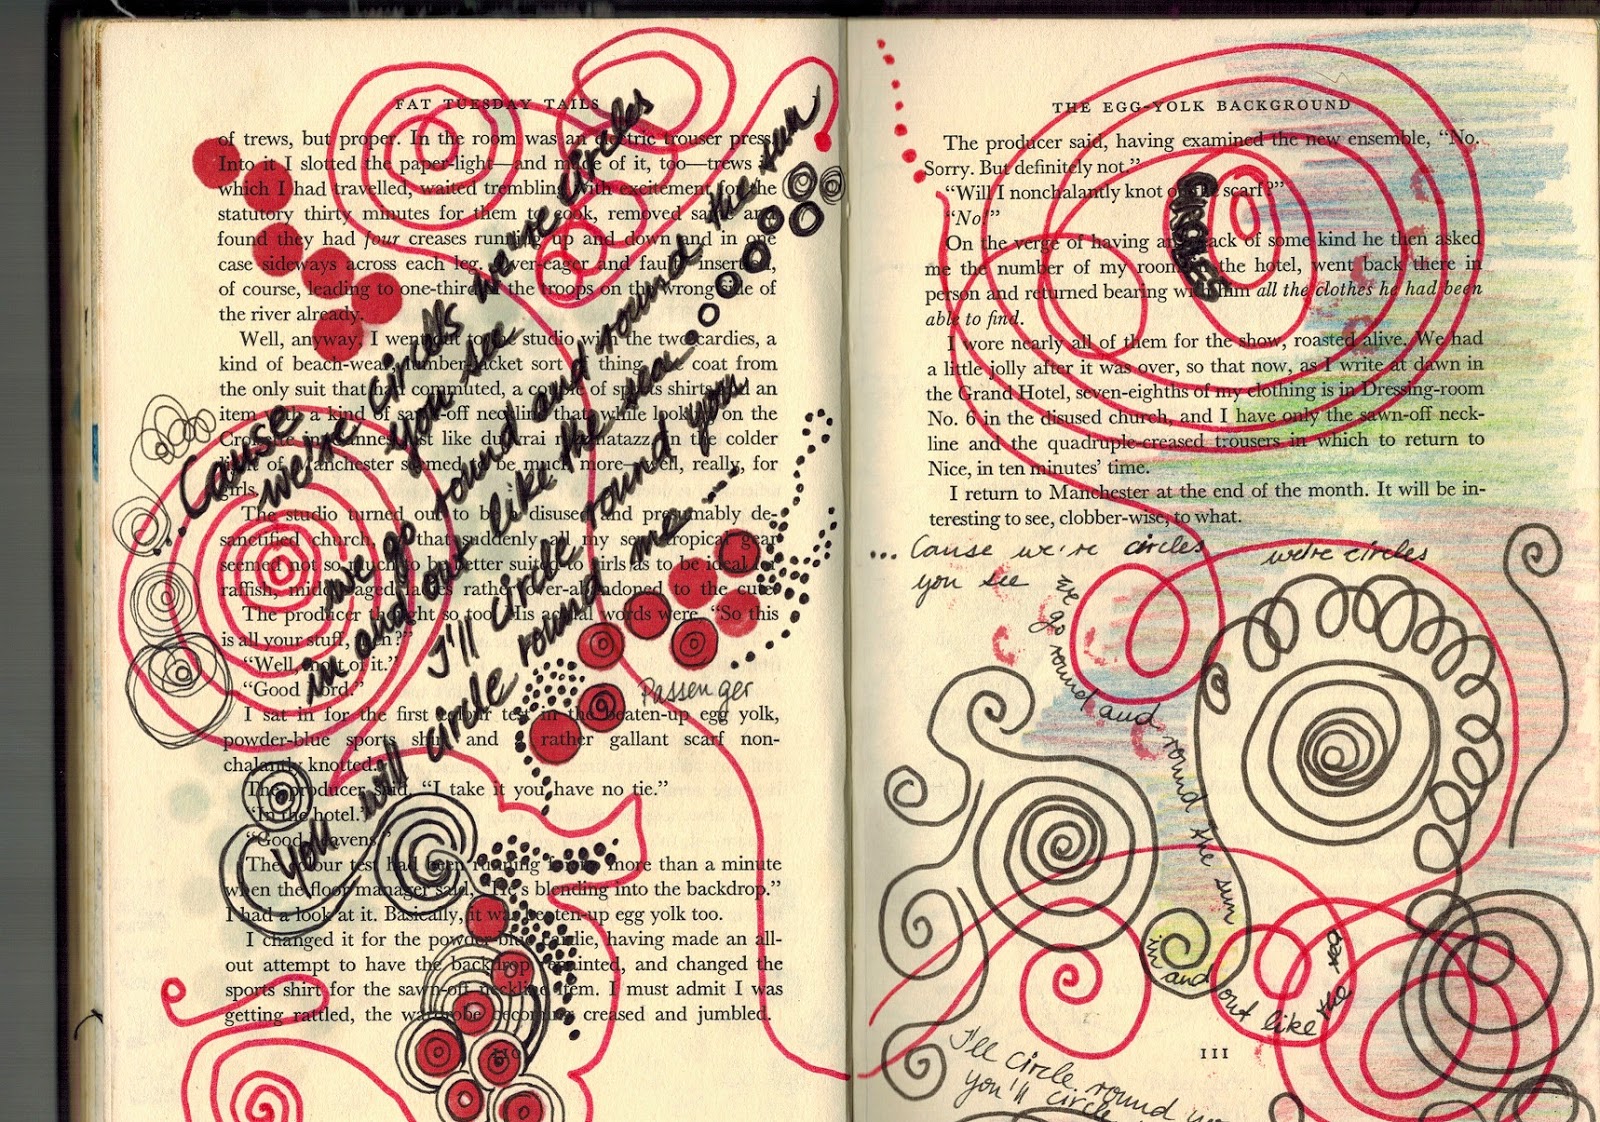 FAT TUESDAY TAILS
of trews, but proper. In the room was an electric trouser press.
Into it I slotted the paper-light—and made of it, too—trews in
which I had travelled, waited trembling with excitement for the
statutory thirty minutes for them to cook, removed same and
found they had four creases running up and down and in one
case sideways across each leg. Over-eager and faulty insertion,
of course, leading to one-third of the troops on the wrong side of
the river already.
Well, anyway, I went out to the studio with the two cardies, a
kind of beach-wear, lumber-jacket sort of thing, the coat from
the only suit that had commuted, a couple of sports shirts and an
item with a kind of sawn-off neckline that, while looking on the
Croisette in Cannes just like du vrai razmatazz, in the colder
light of Manchester seemed to be much more—well, really, for
girls.
The studio turned out to be a disused and presumably de-
sanctified church, so that suddenly all my semi-tropical gear
seemed not so much to be better suited to girls as to be ideal for
raffish, middle-aged ladies rather over-abandoned to the cute.
The producer thought so too. His actual words were, "So this
is all your stuff, then?"
"Well, most of it."
"Good Lord."
I sat in for the first colour test in the beaten-up egg yolk,
powder-blue sports shirt and a rather gallant scarf non-
chalantly knotted.
The producer said, "I take it you have no tie."
"In the hotel."
"Good heavens."
The colour test had been running for no more than a minute
when the floor manager said, "He's blending into the backdrop."
I had a look at it. Basically, it was beaten-up egg yolk too.
I changed it for the powder-blue cardie, having made an all-
out attempt to have the backdrop repainted, and changed the
sports shirt for the sawn-off neckline item. I must admit I was
getting rattled, the wardrobe becoming creased and jumbled.
...Cause we're circles you see we're circles
we're circles
we go round and round the sun
in and out like the sea
I'll circle round you
you will circle round me...
Passenger
THE EGG-YOLK BACKGROUND
The producer said, having examined the new ensemble, "No.
Sorry. But definitely not."
"Will I nonchalantly knot on the scarf?"
"No!"
On the verge of having an attack of some kind he then asked
me the number of my room at the hotel, went back there in
person and returned bearing with him all the clothes he had been
able to find.
I wore nearly all of them for the show, roasted alive. We had
a little jolly after it was over, so that now, as I write at dawn in
the Grand Hotel, seven-eighths of my clothing is in Dressing-room
No. 6 in the disused church, and I have only the sawn-off neck-
line and the quadruple-creased trousers in which to return to
Nice, in ten minutes' time.
I return to Manchester at the end of the month. It will be in-
teresting to see, clobber-wise, to what.
CIRCLES
... Cause we're circles we're circles
you see
we go round and round the sun
in and out like the sea
I'll circle round
you'll circle
III